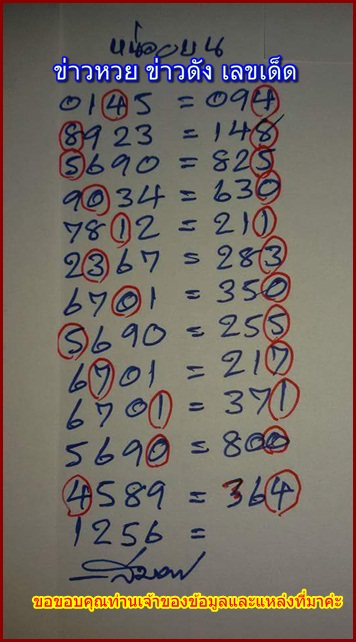 หน่วยบน
ข่าวหวย ข่าวดัง เลขเด็ด
0145 = 094
8923 = 148
5690 = 825
9034 = 630
7812 = 211
2367 = 283
6701 = 350
5690 = 255
6701 = 217
6701 = 371
5690 = 800
4589 = 364
1256 =
ขอขอบคุณท่านเจ้าของข้อมูลและแหล่งที่มาค่ะ